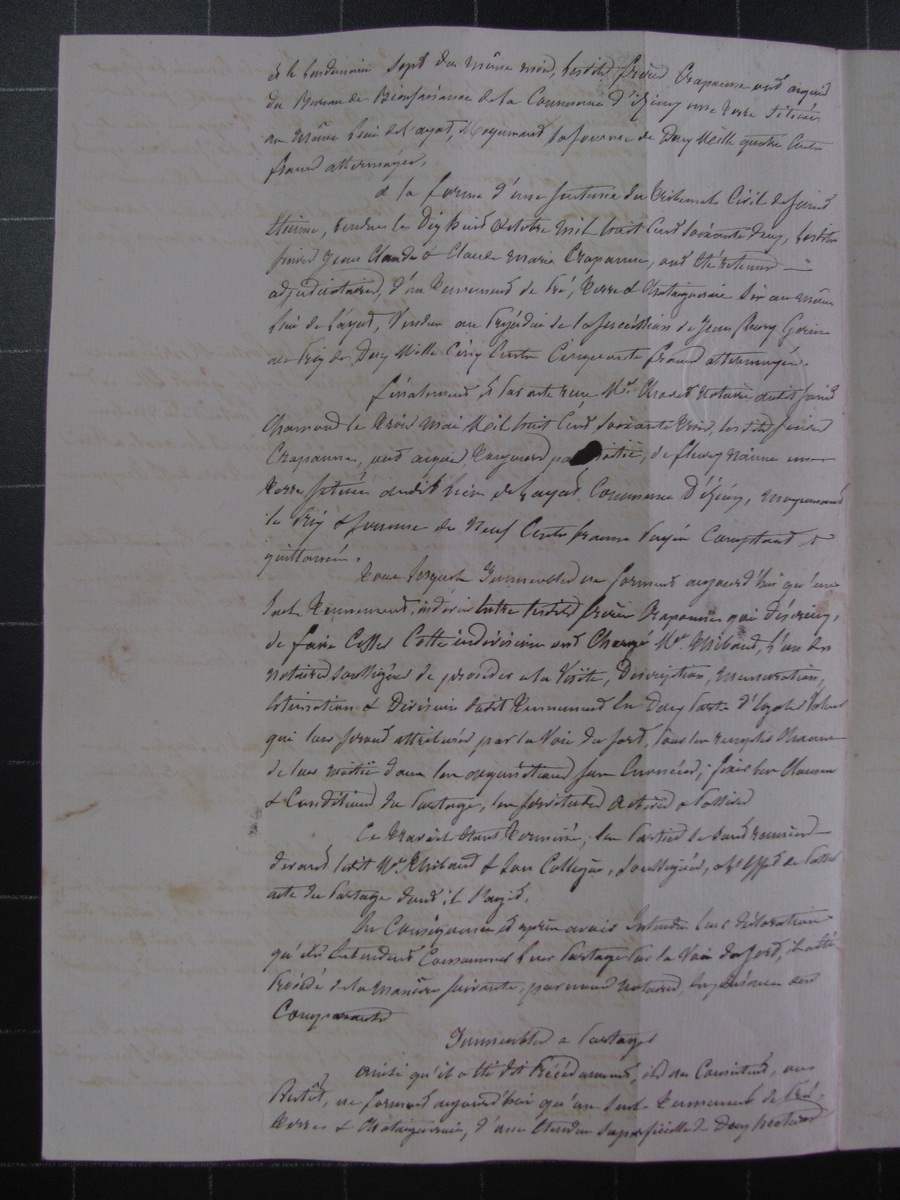 et le lendemain sept du même mois, lesdits frères Crapanne ont acquis
du Bureau de Bienfaisance de la Commune d'Izieux une terre située
au même lieu de Layat, moyennant la somme de Deux Mille quatre Cents
francs attermoyés.
De la forme d'une sentence du tribunal Civil de Saint
Etienne, rendue le Dix huit Octobre mil huit Cent soixante deux, lesdits
frères Jean Claude & Claude Marie Crapanne, ont été retenus
adjudicataires, d'un tennement de Pré, terre & Chataigneraie sis au même
lieu de Layat, Vendu au Préjudice de la succession de Jean
au Prix de Deux Mille Cinq Cents Cinquante francs attermoyés.
Finalement & par acte reçu Me notaire audit Saint
Chamond le trois Mai Mil huit Cent soixante trois, lesdits frères
Crapanne, ont acquis, toujours par moitié, de une
terre située audit lieu de Layat, Commune D'Izieux, moyennant
le Prix & somme de Neuf Cents francs Payés Comptant &
quittancés.
Tous lesquels Immeubles ne forment aujourd'hui qu'un
seul tennement, indivis entre lesdits frères Crapanne qui désireux,
de faire Cesser Cette indivision ont Chargé Me Thibaud, l'un des
notaires soussignés de procéder à la Visite, Description, Mensuration,
Estimation & Division dudit tennement en Deux Parts d'Egale Valeur
qui leur seront attribuées par la Voie du sort, tous les remplis chacun
de leur moitié dans les acquisitions sus énoncées; fixer les Clauses
& Conditions du Partage, les servitudes Actives & Passives
Ce travail étant terminé, les Parties se sont réunies
devant ledit Me Thibaud & son Collègue, soussignés, à l'effet de Passer
acte du Partage dont il s'agit.
En Conséquence et après avoir entendu leur déclaration
qu'ils entendent Consommer leur Partage Par la Voie du sort, il a été
Procédé de la manière suivante, par nous notaires, en présence des
Comparants
Immeubles à Partager
Ainsi qu'il a été dit Précédemment, ils ne Consistent, ou
Plutôt, ne forment aujourd'hui qu'un seul tennement de Pré,
terres & Chataigneraie, d'une Etendue superficielle de Deux hectares